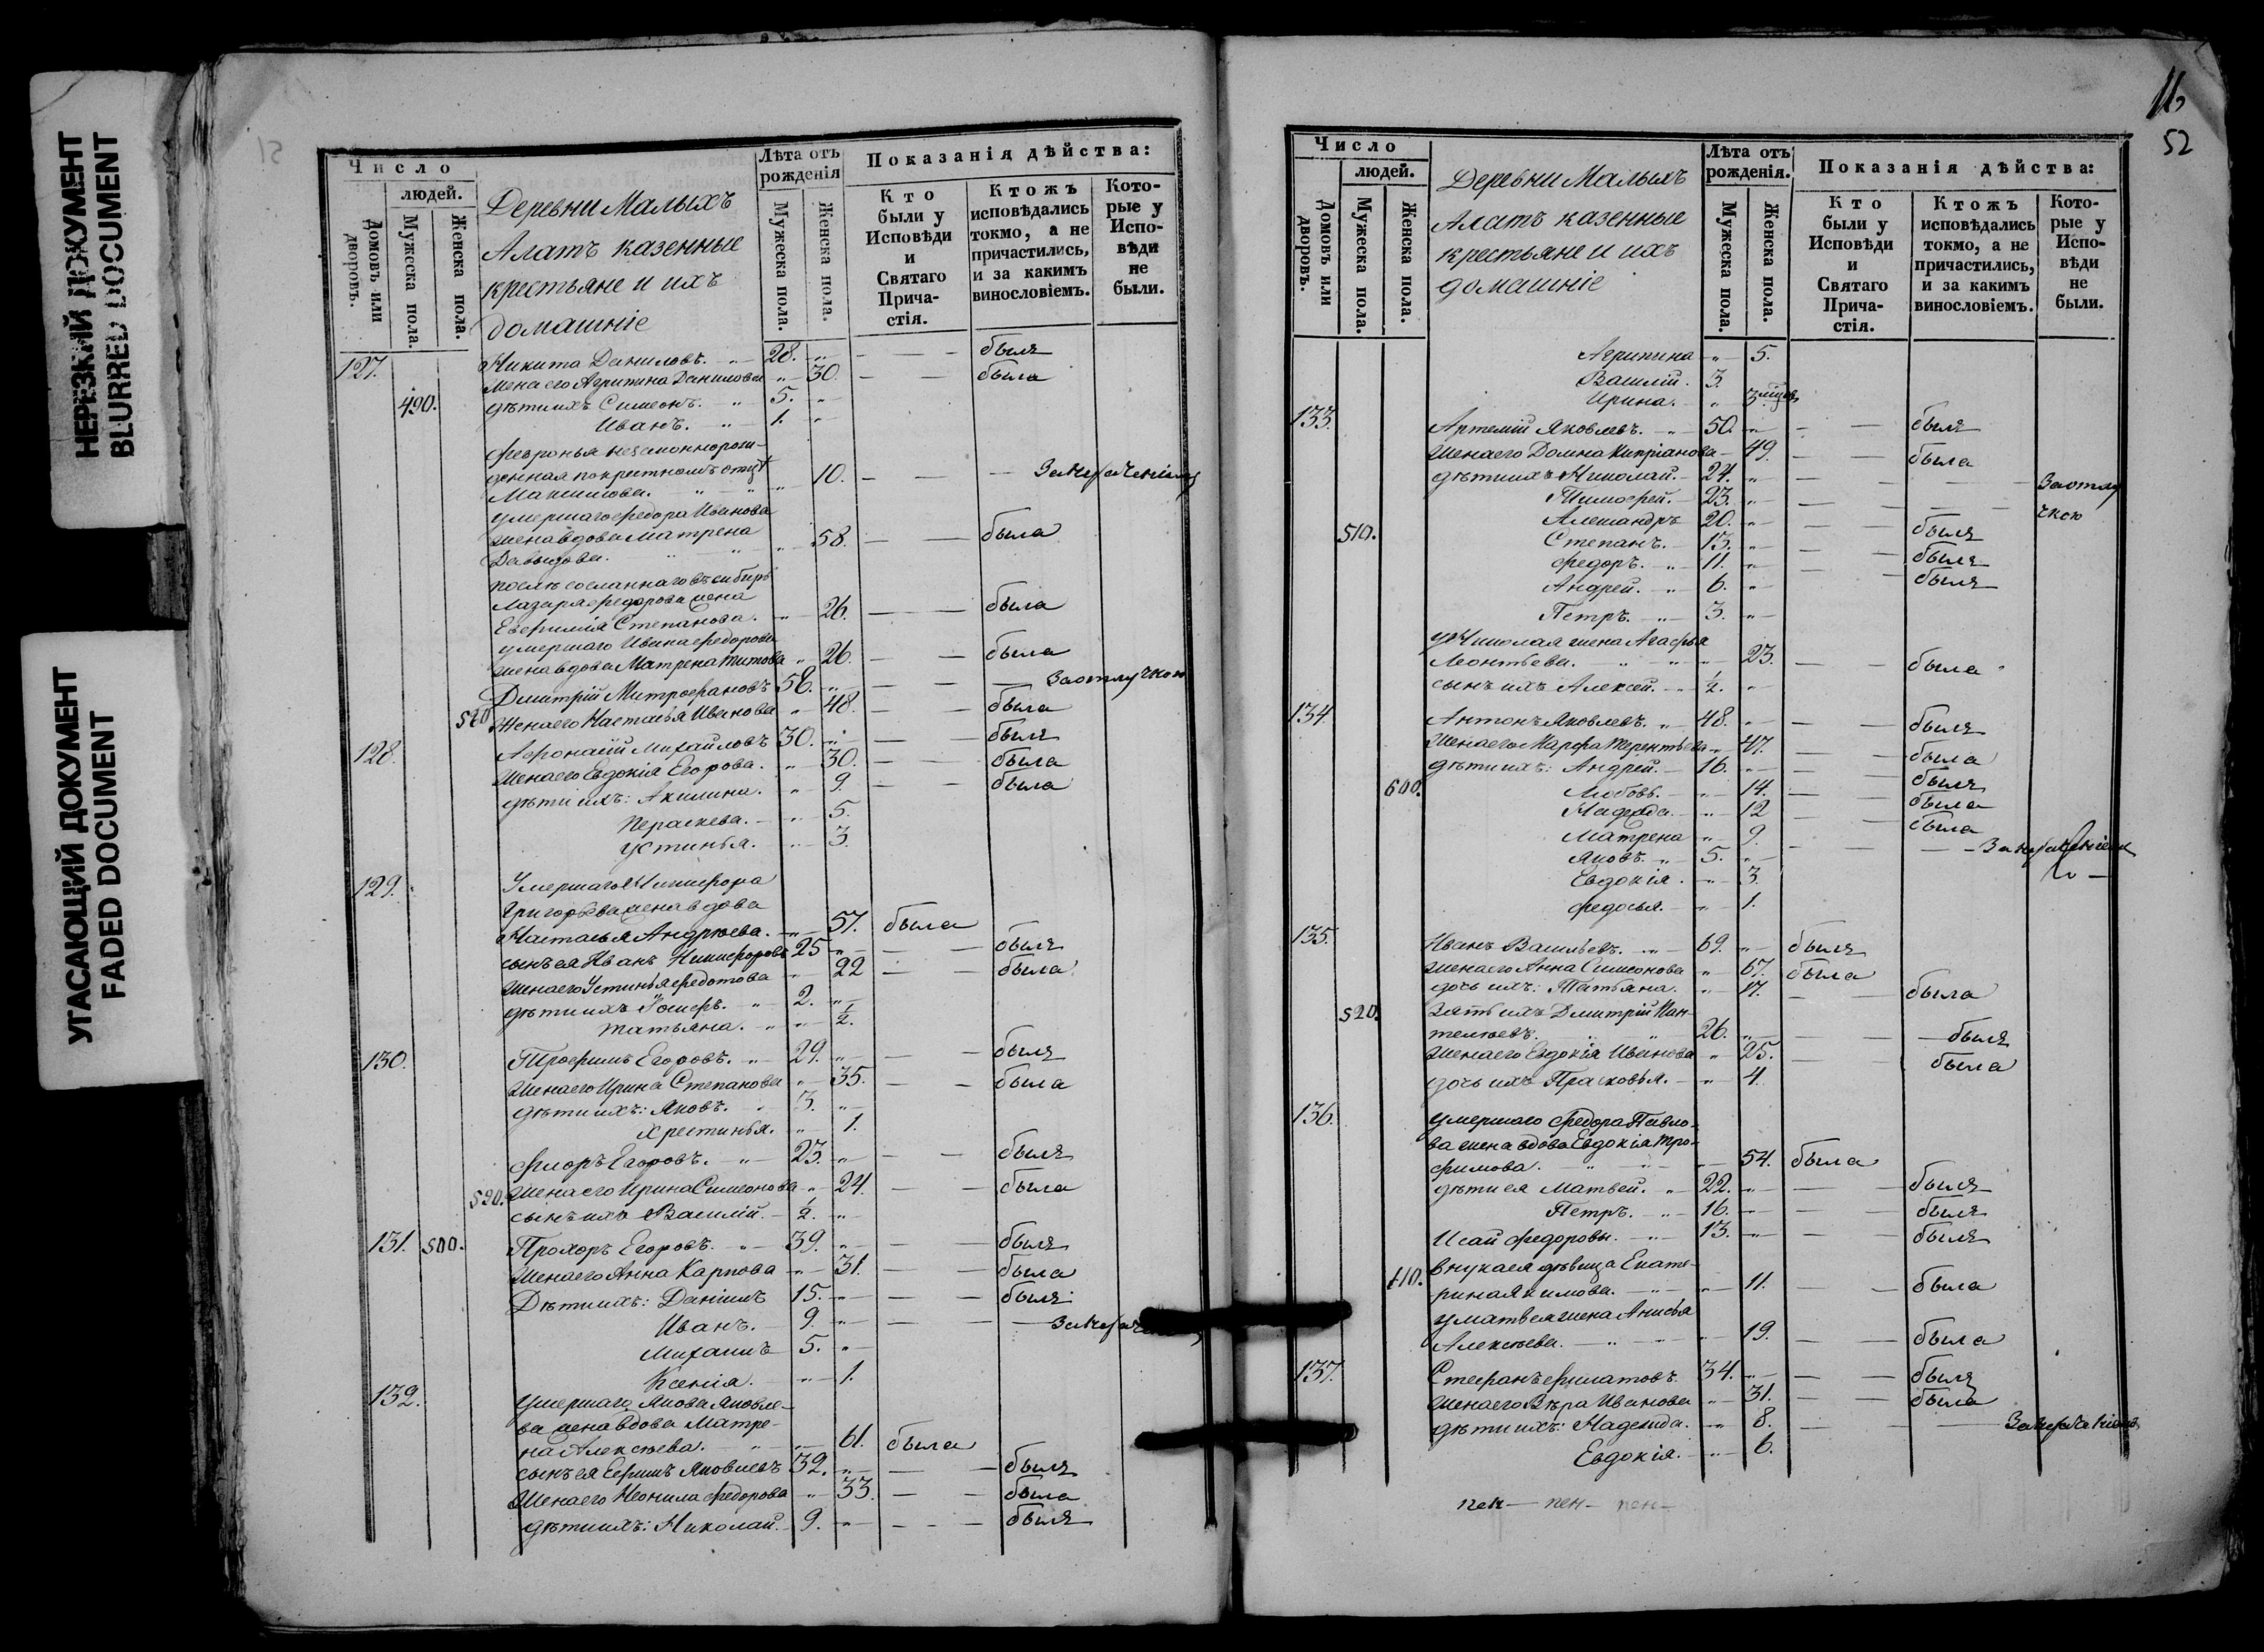 НЕРЕЗКИЙ ДОКУМЕНТ
BLURRED DOCUMENT
УГАСАЮЩИЙ ДОКУМЕНТ
FADED DOCUMENT
Число
людей.
Домовъ или дворовъ.
Мужеска пола.
Женска пола.
Деревни Малыхъ
Алатъ казенные
крестьяне и ихъ
домашніе
Лѣта отъ рожденія
Мужеска пола.
Женска пола.
Показанія дѣйства:
Кто были у Исповѣди и Святаго Прича-стія.
Ктожъ исповѣдались токмо, а не причастились, и за какимъ винословіемъ.
Кото-рые у Испо-вѣди не были.
127. Никита Даниловъ. 28. былъ
жена его Агрипина Данилова 30. была
490. дѣти ихъ Симеонъ. 5.
Иванъ. 1.
Февронья незаконнорож-
денная по крестномъ отцѣ
Максимова. 10.
умершаго Федора Иванова
жена вдова Матрена
Давыдова. 58. была
послѣ сосланнаго въ сибирь
Лазаря Федорова жена
Евфимія Степанова. 26. была
умершаго Ивана Федорова
жена вдова Матрена Титова 26. была
Дмитрій Митрофановъ 56. За отлучкою
580 Жена его Настасья Иванова 48. была
128. Афонасій Михайловъ 30. былъ
Жена его Евдокія Егорова. 30. была
дѣти ихъ: Акилина. 9. была
Параскева. 5.
Устинья. 3.
129. Умершаго Никифора
Григорьева жена вдова
Настасья Андреева. 57. была
сынъ ея Иванъ Никифоровъ 25 былъ
Жена его Устинья Федотова 22 была
дѣти ихъ Іосифъ. 2.
Татьяна. 1/2.
130. Трофимъ Егоровъ. 29. былъ
Жена его Ирина Степанова 35. была
дѣти ихъ: Яковъ. 3.
Христинья. 1.
Флоръ Егоровъ. 23. былъ
590. Жена его Ирина Симеонова 24. была
сынъ ихъ Василій. 1/2.
131. 500. Прохоръ Егоровъ. 39. былъ
Жена его Анна Карпова 31. была
Дѣти ихъ: Даніилъ 15. былъ
Иванъ. 9.
Михаилъ 5.
Ксенія. 1.
132. Умершаго Якова Яковле-
ва жена вдова Матре-
на Алексѣева. 61. была
сынъ ея Ефимъ Яковлевъ 32. былъ
Жена его Неонила Федорова 33. была
дѣти ихъ: Николай. 9. былъ
52
Число
людей.
Домовъ или дворовъ.
Мужеска пола.
Женска пола.
Деревни Малыхъ
Алатъ казенные
крестьяне и ихъ
домашніе
Лѣта отъ рожденія.
Мужеска пола.
Женска пола.
Показанія дѣйства:
Кто были у Исповѣди и Святаго Прича-стія.
Ктожъ исповѣдались токмо, а не причастились, и за какимъ винословіемъ.
Кото-рые у Испо-вѣди не были.
Агрипина 5.
Василій. 3.
Ирина. 3
133. Артемій Яковлевъ. 50. былъ
Жена его Домна Кипріанова 49. была
дѣти ихъ Николай. 24. За отлу
Тимофей. 23. чкою
Александръ 20. былъ
510. Степанъ. 13. былъ
Федоръ. 11. былъ
Андрей. 6.
Петръ. 3.
у Николая жена Агафья
Леонтьева. 23. была
сынъ ихъ Алексей. 1/2.
134 Антонъ Яковлевъ. 48. былъ
Жена его Марфа Терентьева 47. была
дѣти ихъ: Андрей. 16. былъ
600. Любовь. 14. была
Надежда. 12 была
Матрена 9.
Яковъ. 5.
Евдокія. 3.
Федосья. 1.
135. Иванъ Васильевъ. 69. былъ
Жена его Анна Симеонова 67. была
дочь ихъ: Татьяна. 17. была
520. Зять ихъ Дмитрій Пан-
телѣевъ. 26. былъ
Жена его Евдокія Иванова 25. была
дочь ихъ Прасковья. 4.
136. умершаго Федора Павло-
ва жена вдова Евдокія Тро-
фимова. 54. была
дѣти ея Матвей. 22. былъ
Петръ. 16. былъ
Исай Федоровы. 13. былъ
610. внука ея дѣвица Екате-
рина Якимова. 11. была
у Матвея жена Анисья
Алексѣева. 19. была
137. Стефанъ Филатовъ. 34. былъ
Жена его Вѣра Иванова 31. была
дѣти ихъ: Надежда. 8.
Евдокія. 6.